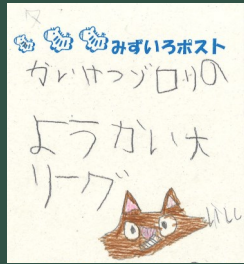 みずいろポスト
かいけつゾロリの
ようかい大
リーグ